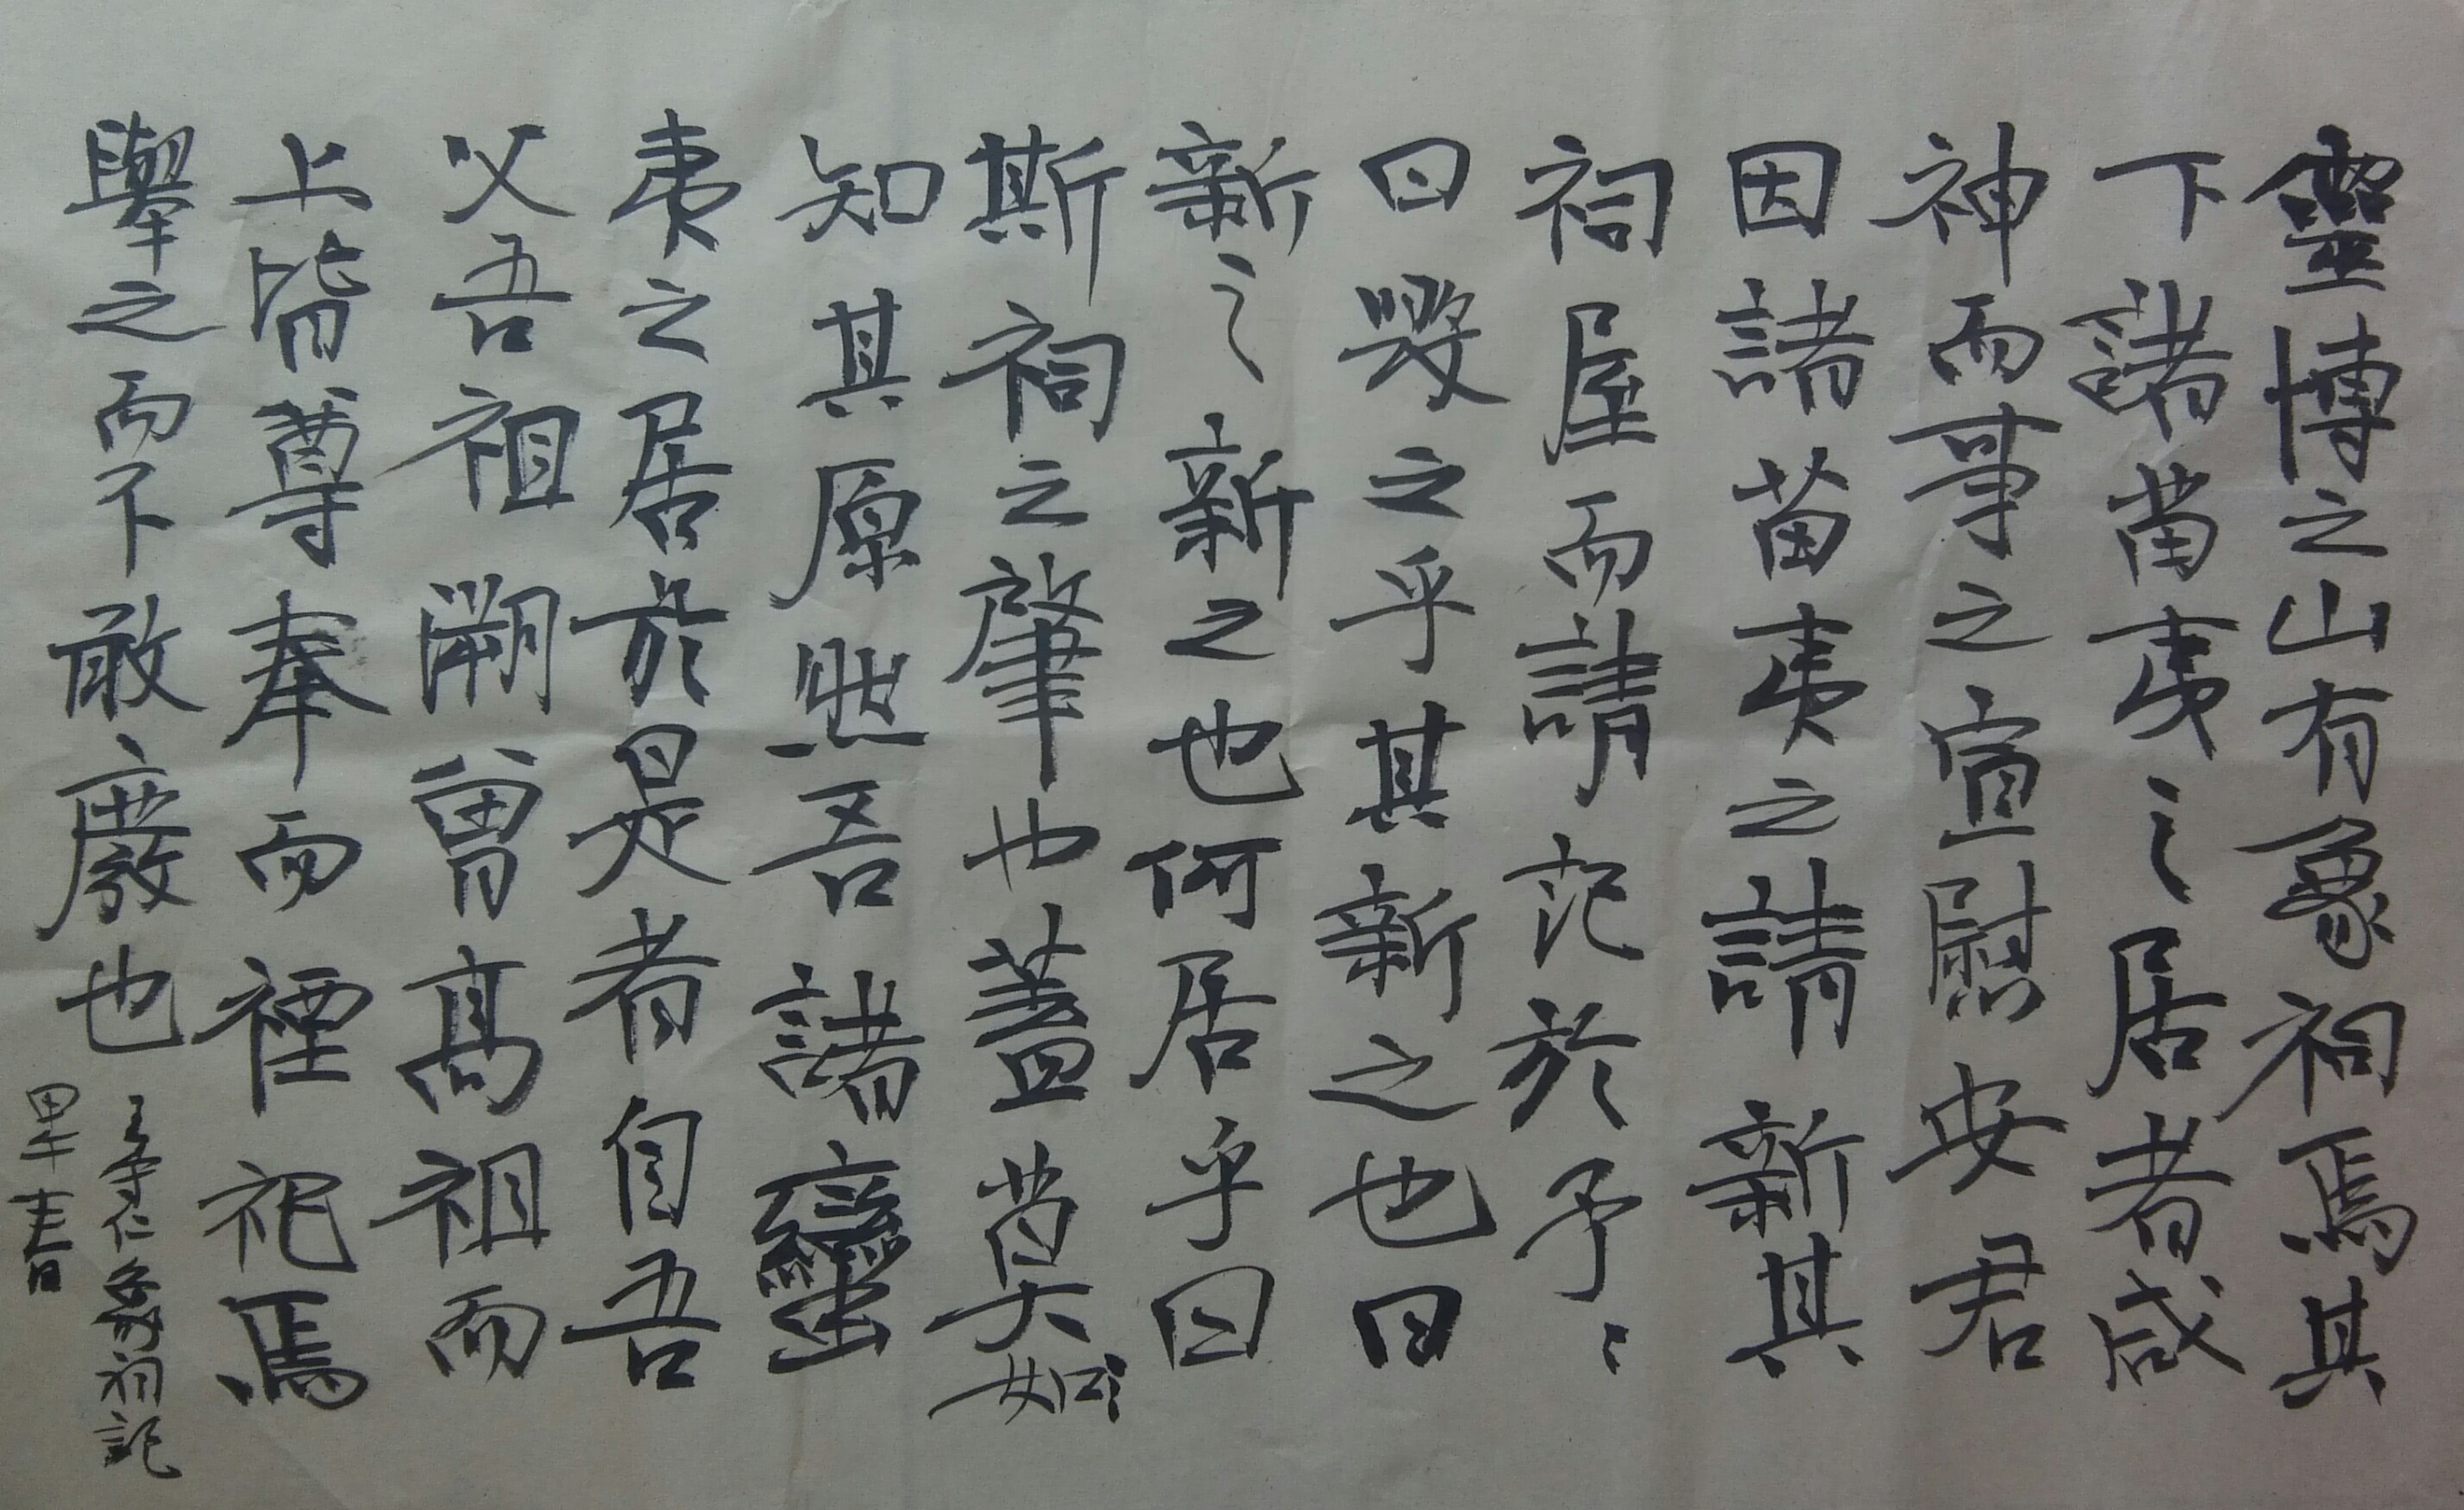 靈博之山有象祠焉其
下諸苗夷之居者咸
神而事之宣慰安君
因諸苗夷之請新其
祠屋而請記於予〻
曰毀之乎其新之也曰
新之新之也何居乎曰
斯祠之肇也蓋莫知
知其原然吾諸蠻
夷之居於是者自吾
父吾祖溯曾高祖而
上皆尊奉而禋祀焉
舉之而不敢廢也
王守仁象祠記
甲午